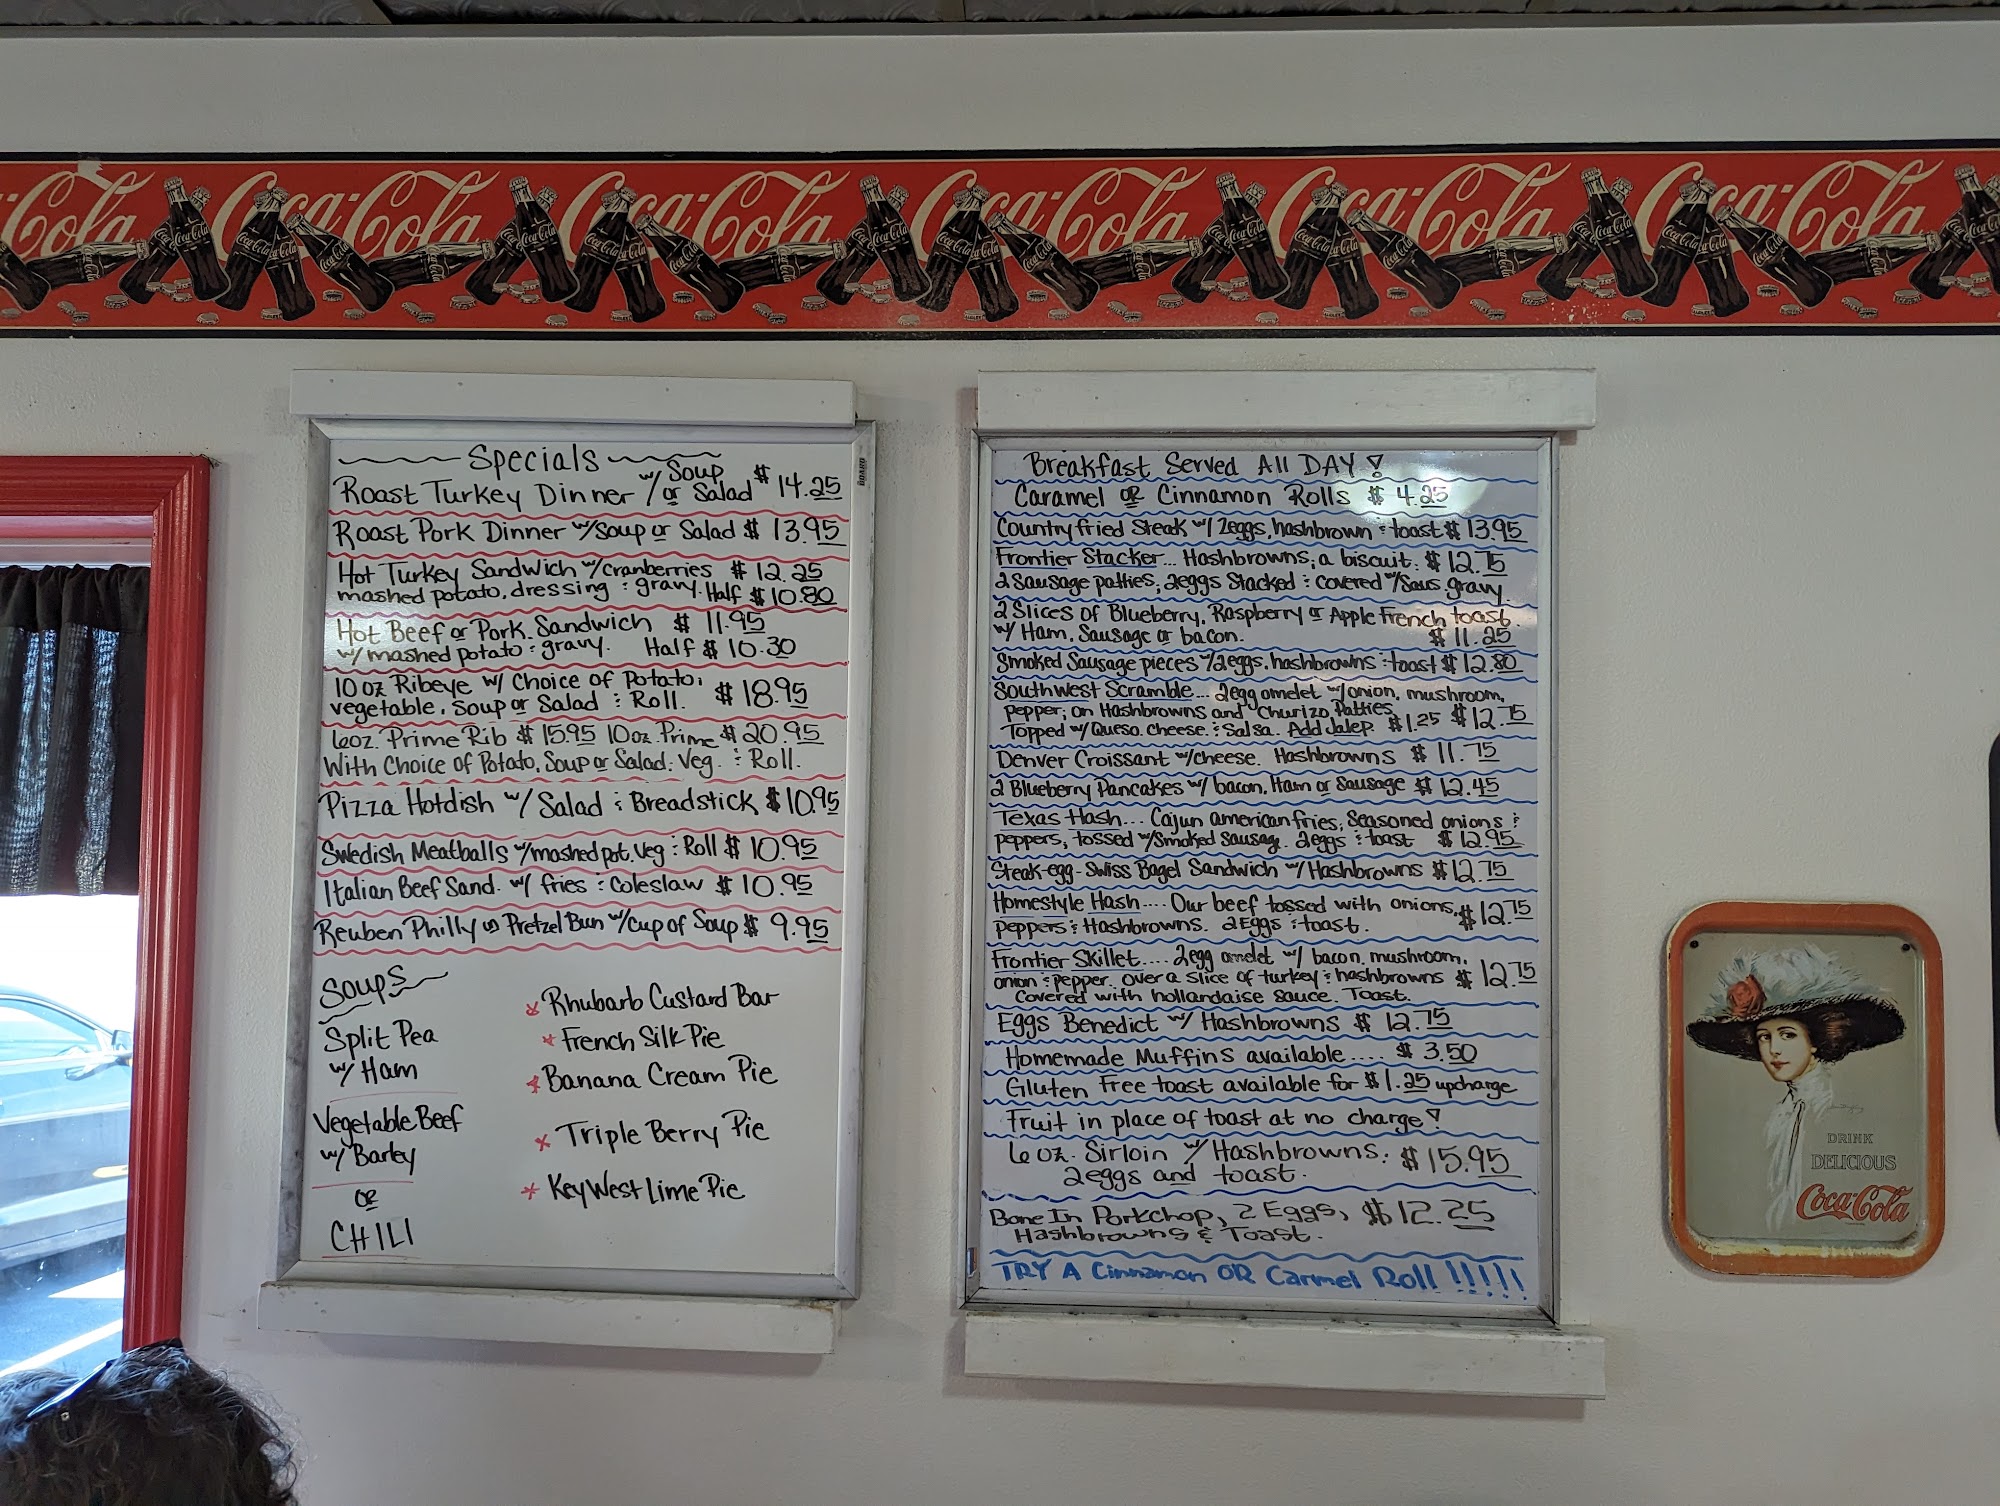 Coca-Cola Coca-Cola Coca-Cola Coca-Cola Coca-Cola Coca-Cola
Specials
Roast Turkey Dinner w/ Soup or Salad $14.25
Roast Pork Dinner w/Soup or Salad $13.95
Hot Turkey Sandwich w/cranberries $12.25
mashed potato, dressing & gravy. Half $10.80
Hot Beef or Pork Sandwich $11.95
w/mashed potato & gravy. Half $10.30
10 oz Ribeye w/ Choice of Potato,
vegetable, Soup or Salad & Roll. $18.95
6oz. Prime Rib $15.95 10oz. Prime $20.95
With Choice of Potato, Soup or Salad, Veg. & Roll.
Pizza Hotdish w/ Salad & Breadstick $10.95
Swedish Meatballs w/mashed pot, Veg & Roll $10.95
Italian Beef Sand. w/ fries & Coleslaw $10.95
Reuben Philly on Pretzel Bun w/Cup of Soup $9.95
Soups
Split Pea
w/ Ham
Vegetable Beef
w/ Barley
OR
CHILI
Rhubarb Custard Bar
French Silk Pie
Banana Cream Pie
Triple Berry Pie
Key West Lime Pie
Breakfast Served All DAY!
Caramel OR Cinnamon Rolls $4.25
Countryfried Steak w/ 2eggs, hashbrown & toast $13.95
Frontier Stacker... Hashbrowns, a biscuit. $12.75
2 Sausage patties, 2eggs Stacked & covered w/Saus. gravy
2 Slices of Blueberry, Raspberry or Apple French toast.
w/ Ham, Sausage or bacon. $11.25
Smoked Sausage pieces w/2eggs, hashbrowns & toast $12.80
Southwest Scramble... 2egg omelet w/onion, mushroom,
pepper, on Hashbrowns and Churizo Patties
Topped w/Queso. cheese. & Salsa. Add Jalep. $1.25 $12.75
Denver Croissant w/cheese. Hashbrowns $11.75
2 Blueberry Pancakes w/ bacon, Ham or Sausage $12.45
Texas Hash... Cajun american fries, Seasoned onions &
peppers, tossed w/Smoked Sausag. 2eggs & toast $12.95
Steak-egg-Swiss Bagel Sandwich w/Hashbrowns $12.75
Homestyle Hash.... Our beef tossed with onions,
peppers & Hashbrowns. 2Eggs & toast. $12.75
Frontier Skillet.... 2egg omelet w/ bacon, mushroom,
onion & pepper. over a slice of turkey & hashbrowns $12.75
Covered with hollandaise sauce. Toast.
Eggs Benedict w/ Hashbrowns $12.75
Homemade Muffins available.... $3.50
Gluten Free toast available for $1.25 upcharge
Fruit in place of toast at no charge!
6 oz. Sirloin w/Hashbrowns, $15.95
2eggs and toast.
Bone In Porkchop, 2 Eggs, $12.25
Hashbrowns & Toast.
TRY A Cinnamon OR Carmel Roll!!!!!
DRINK
DELICIOUS
Coca-Cola